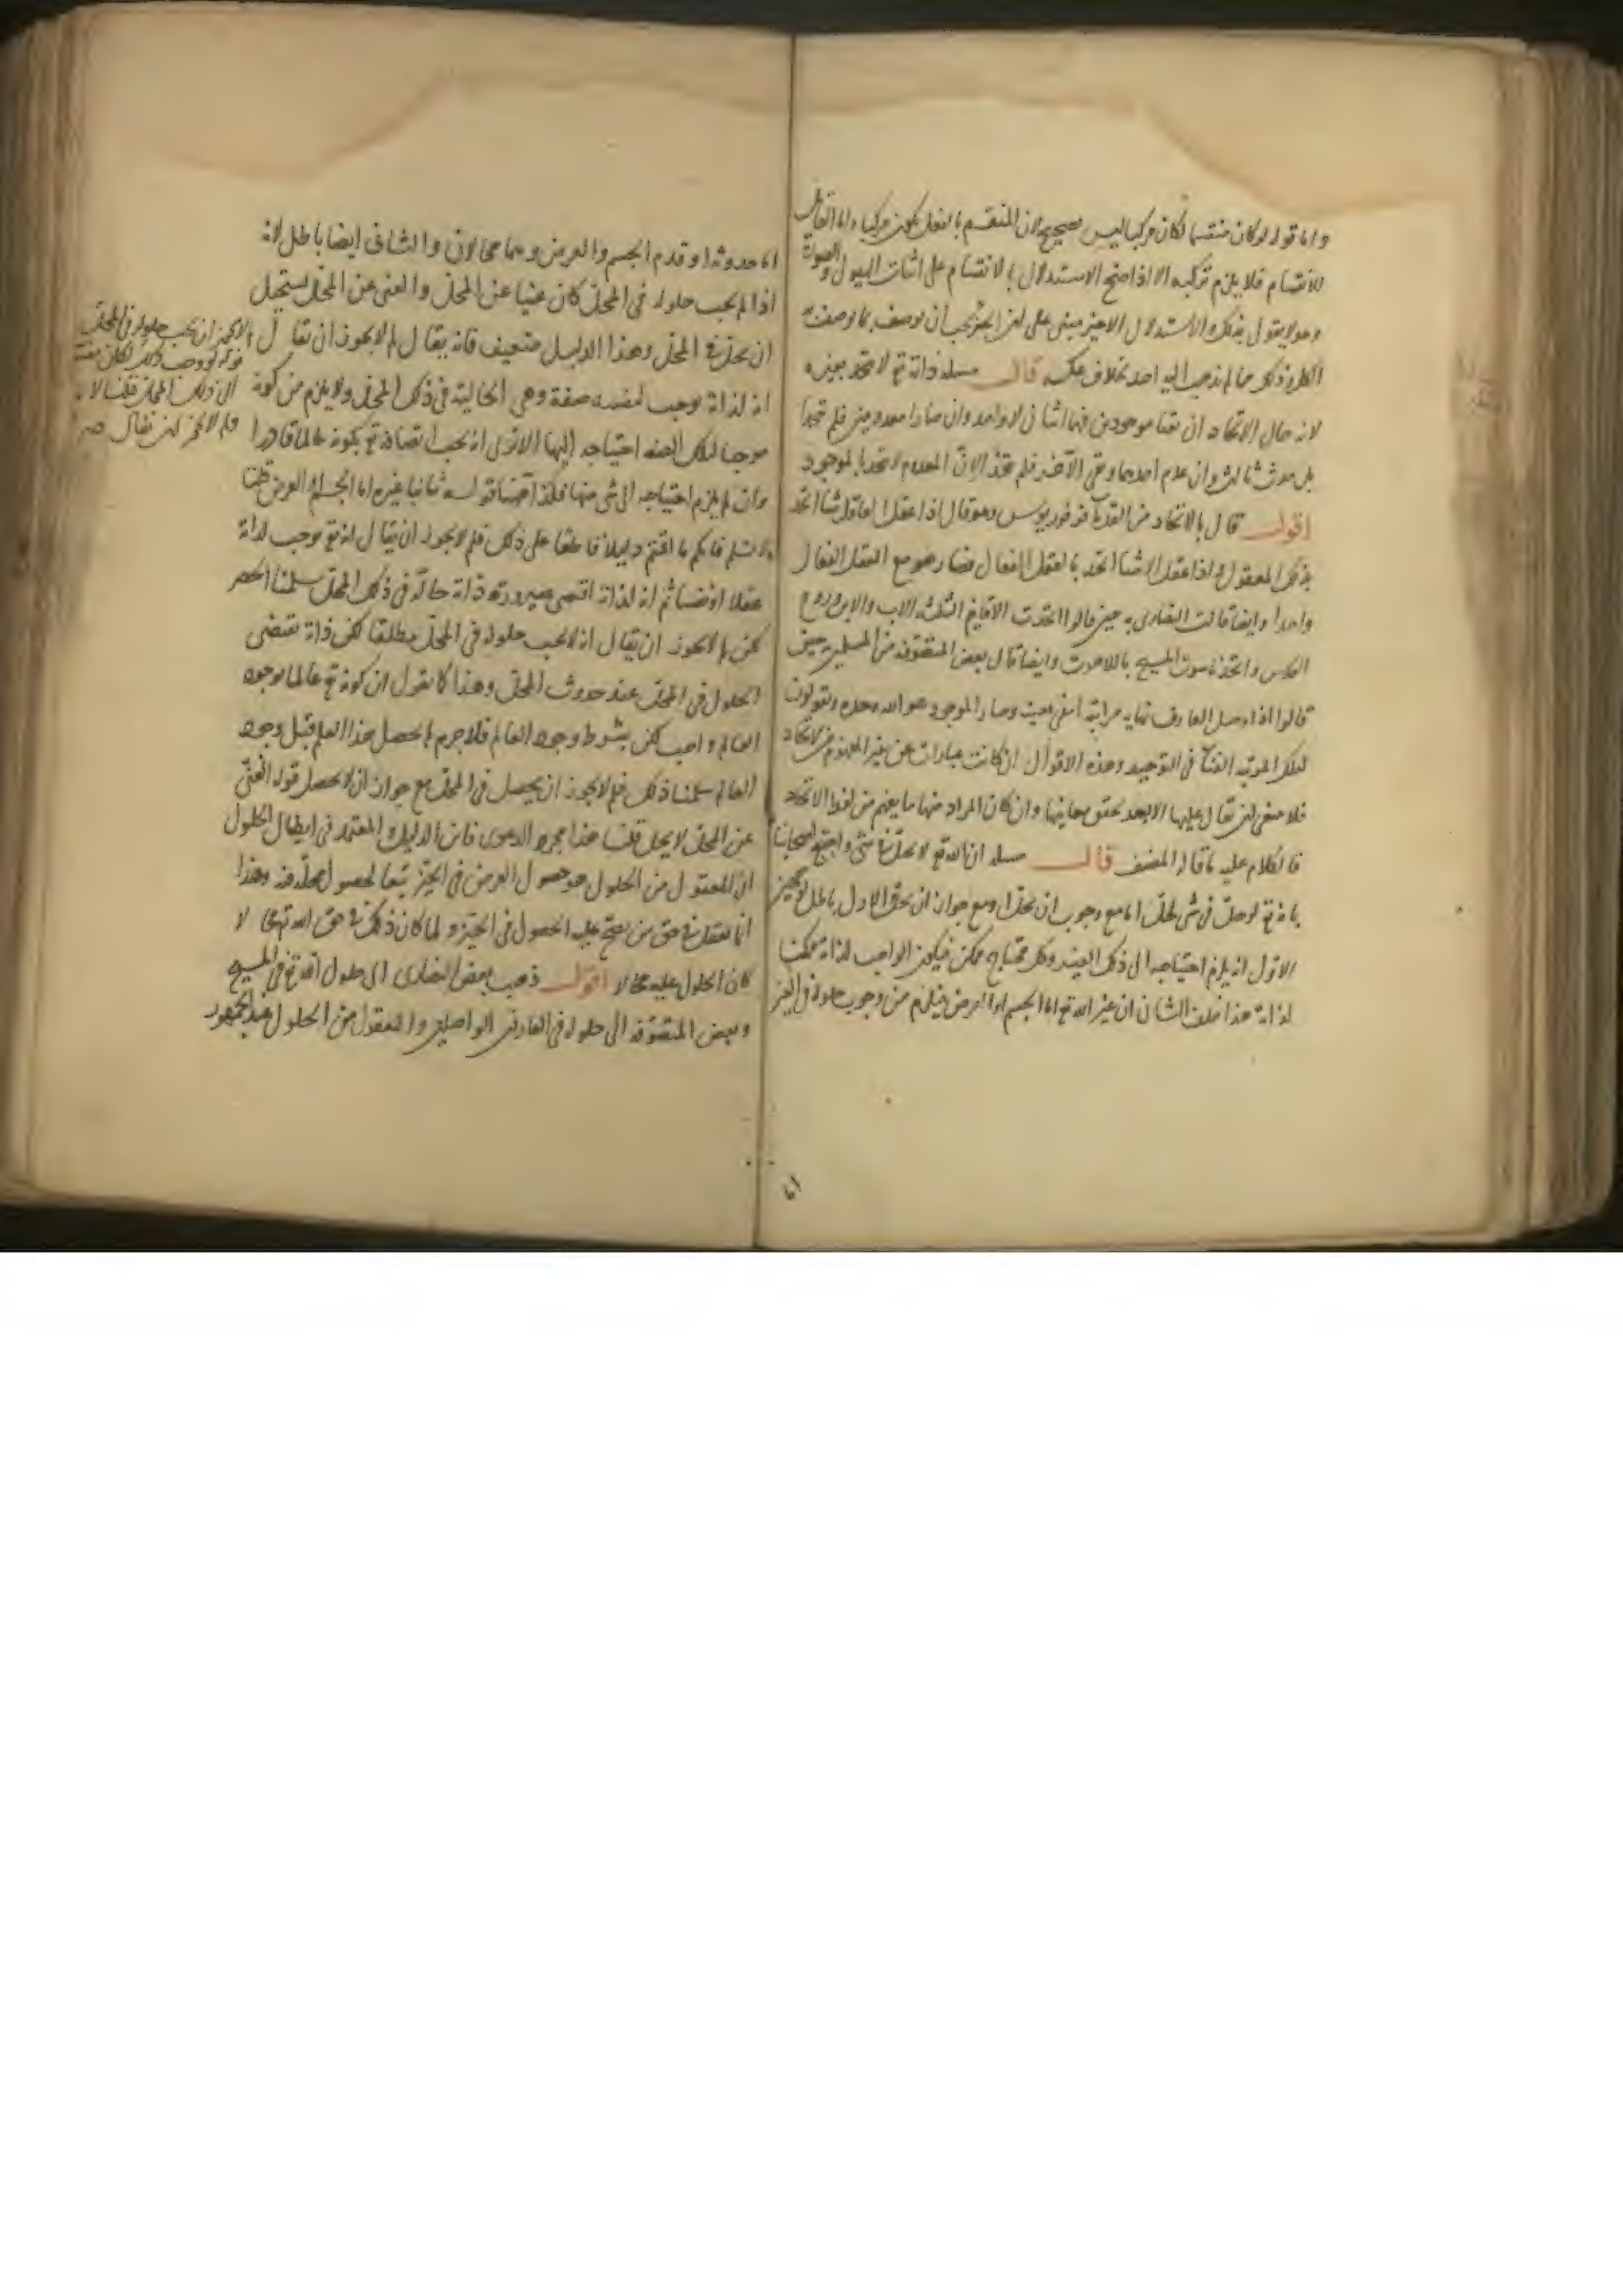 واما قوله لو كان منقسما لكان مركبا ليس بصحيح لان المنقسم بالفعل يكون مركبا واما القابل
للانقسام فلا يلزم تركبه الا اذا صح الاستدلال بالانقسام على اثبات الهيولى والصورة
وهو لا يقول بذلك والاستدلال الاخير مبنى على لن الجزء يجب أن يوصف بما يوصف به
الكل وذلك مما لم يذهب اليه احد بخلاف عكسه قال مسئله ذاته تع لا تتحد بغيره
لانه حال الاتحاد ان بقيا موجودين فهما اثنان لا واحد وان صارا معدومين فلم يتحدا
بل حدث ثالث وان عدم احدهما وبقى الآخر فلم يتحد لانّ المعدوم لا يتحد بالموجود
اقول قال بالاتحاد من القدماء فرفوريوس وهو قال اذا عقل العاقل شيا اتحد
بذلك المعقول واذا عقل الاشيا اتحد بالعقل الفعال فصار هو مع العقل الفعال
واحدا وايضا قالت النصارى به حين قالوا اتحدت الاقانيم الثلثة الاب والابن وروح
القدس واتحد ناسوت المسيح باللاهوت وايضا قال بعض المتصوفه من المسلمين حين
قالوا اذا وصل العارف نهايه مراتبه انتفى تعينه وصار الموجود هو الله وحده ويقولون
لتلك المرتبه الفناء فى التوحيد وهذه الاقوال ان كانت عبارات عن غير المفهوم من الاتحاد
فلا ينبغى لن تقال عليها الا بعد تحقق معانيها وان كان المراد منها ما يفهم من لفظ الاتحاد
فالكلام عليه ما قاله المصنف قال مسئله ان الله تع لا يحل فى شى واحتج اصحابنا
بانه تع لو حل فى شى لحلّ اما مع وجوب ان يحل او مع جواز ان يحل والاول باطل لوجهين
الاول انه يلزم احتياجه الى ذلك الغير وكل محتاج ممكن فيكون الواجب لذاته ممكنا
لذاته هذا خلف الثانى ان غير الله تع اما الجسم او العرض فيلزم من وجوب حلوله فى الغير
اما حدوثه او قدم الجسم والعرض وهما محالان والثانى ايضا باطل لانه
اذا لم يجب حلوله فى المحل كان غنيا عن المحل والغنى عن المحل يستحيل
ان يحل فى المحل وهذا الدليل ضعيف فانه يقال لم لا يجوز ان يقال
انه لذاته يوجب لنفسه صفة وهى الحالية فى ذلك المحل ولا يلزم من كونه
موجبا لتلك الصفه احتياجه اليها الا ترى انه يجب اتصافه تع بكونه عالما قادرا
وان لم يلزم احتياجه الى شى منها فكذا ههنا قوله ثانيا غيره اما الجسم او العرض قلنا
لا نسلم فانكم ما اقمتم دليلا قاطعا على ذلك فلم لا يجوز ان يقال انه تع يوجب لذاته
عقلا او نفسا ثم انه لذاته اقتضى صيرورته ذاته حالة فى ذلك المحل سلمنا الحصر
لكن لم لا يجوز ان يقال انه لا يجب حلوله فى المحل مطلقا لكن ذاته تقتضى
الحلول فى المحل عند حدوث المحل وهذا كما نقول ان كونه تع عالما بوجود
العالم واجب لكن بشرط وجود العالم فلا جرم لم يحصل هذا العلم قبل وجود
العالم سلمنا ذلك فلم لا يجوز ان يحصل فى المحل مع جواز ان لا يحصل قوله الغنى
عن المحل لا يحل قلنا هذا مجرد الدعوى فاين الدليل والمعتمد فى ابطال الحلول
ان المعقول من الحلول هو حصول العرض فى الحيز تبعا لحصول محله فيه وهذا
انما يعقل فى حق من يصح عليه الحصول فى الحيز ولما كان ذلك فى حق الله تع محالا
كان الحلول عليه محالا اقول ذهب بعض النصارى الى حلول الله تع فى المسيح
وبعض المتصوّفه الى حلوله فى العارفين الواصلين والمعقول من الحلول عند الجمهور
لم لا يجوز ان يجب حلوله فى المحل
قوله لو وجب ذلك لكان مفتقرا
الى ذلك المحل قلنا لا نسلم
ولم لا يجوز لن يقال